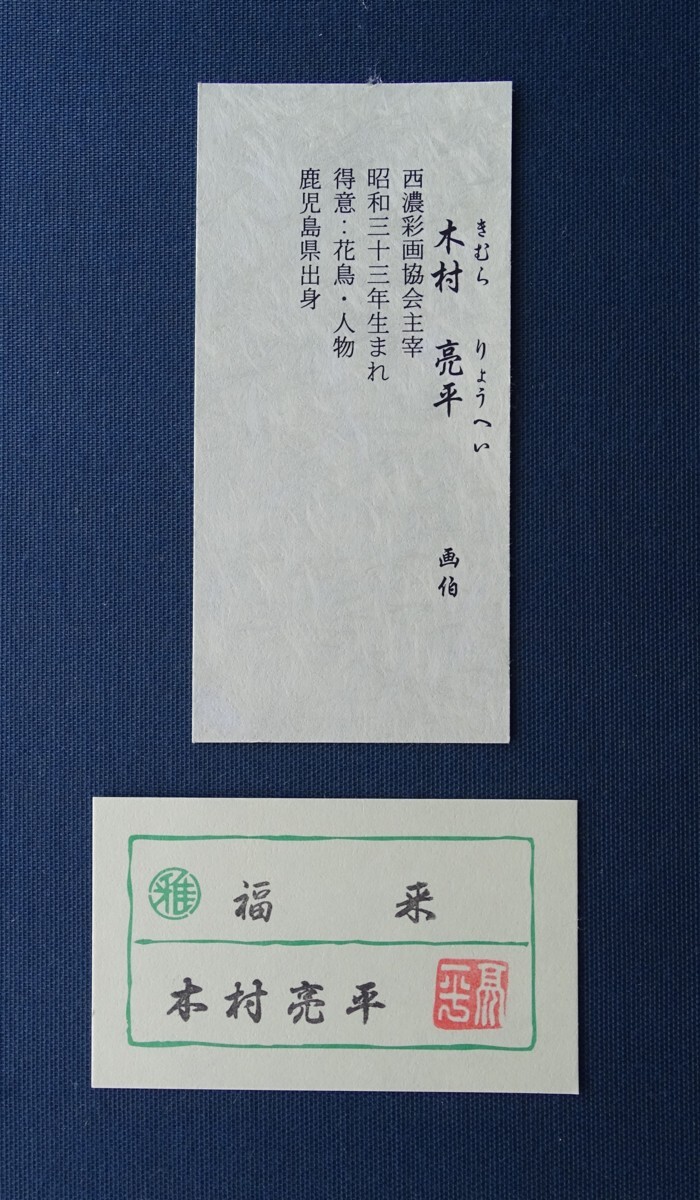 きむら りょうへい
木村 亮平 画伯
西濃彩画協会主宰
昭和三十三年生まれ
得意：花鳥・人物
鹿児島県出身
雅 福 来
木村亮平
亮平